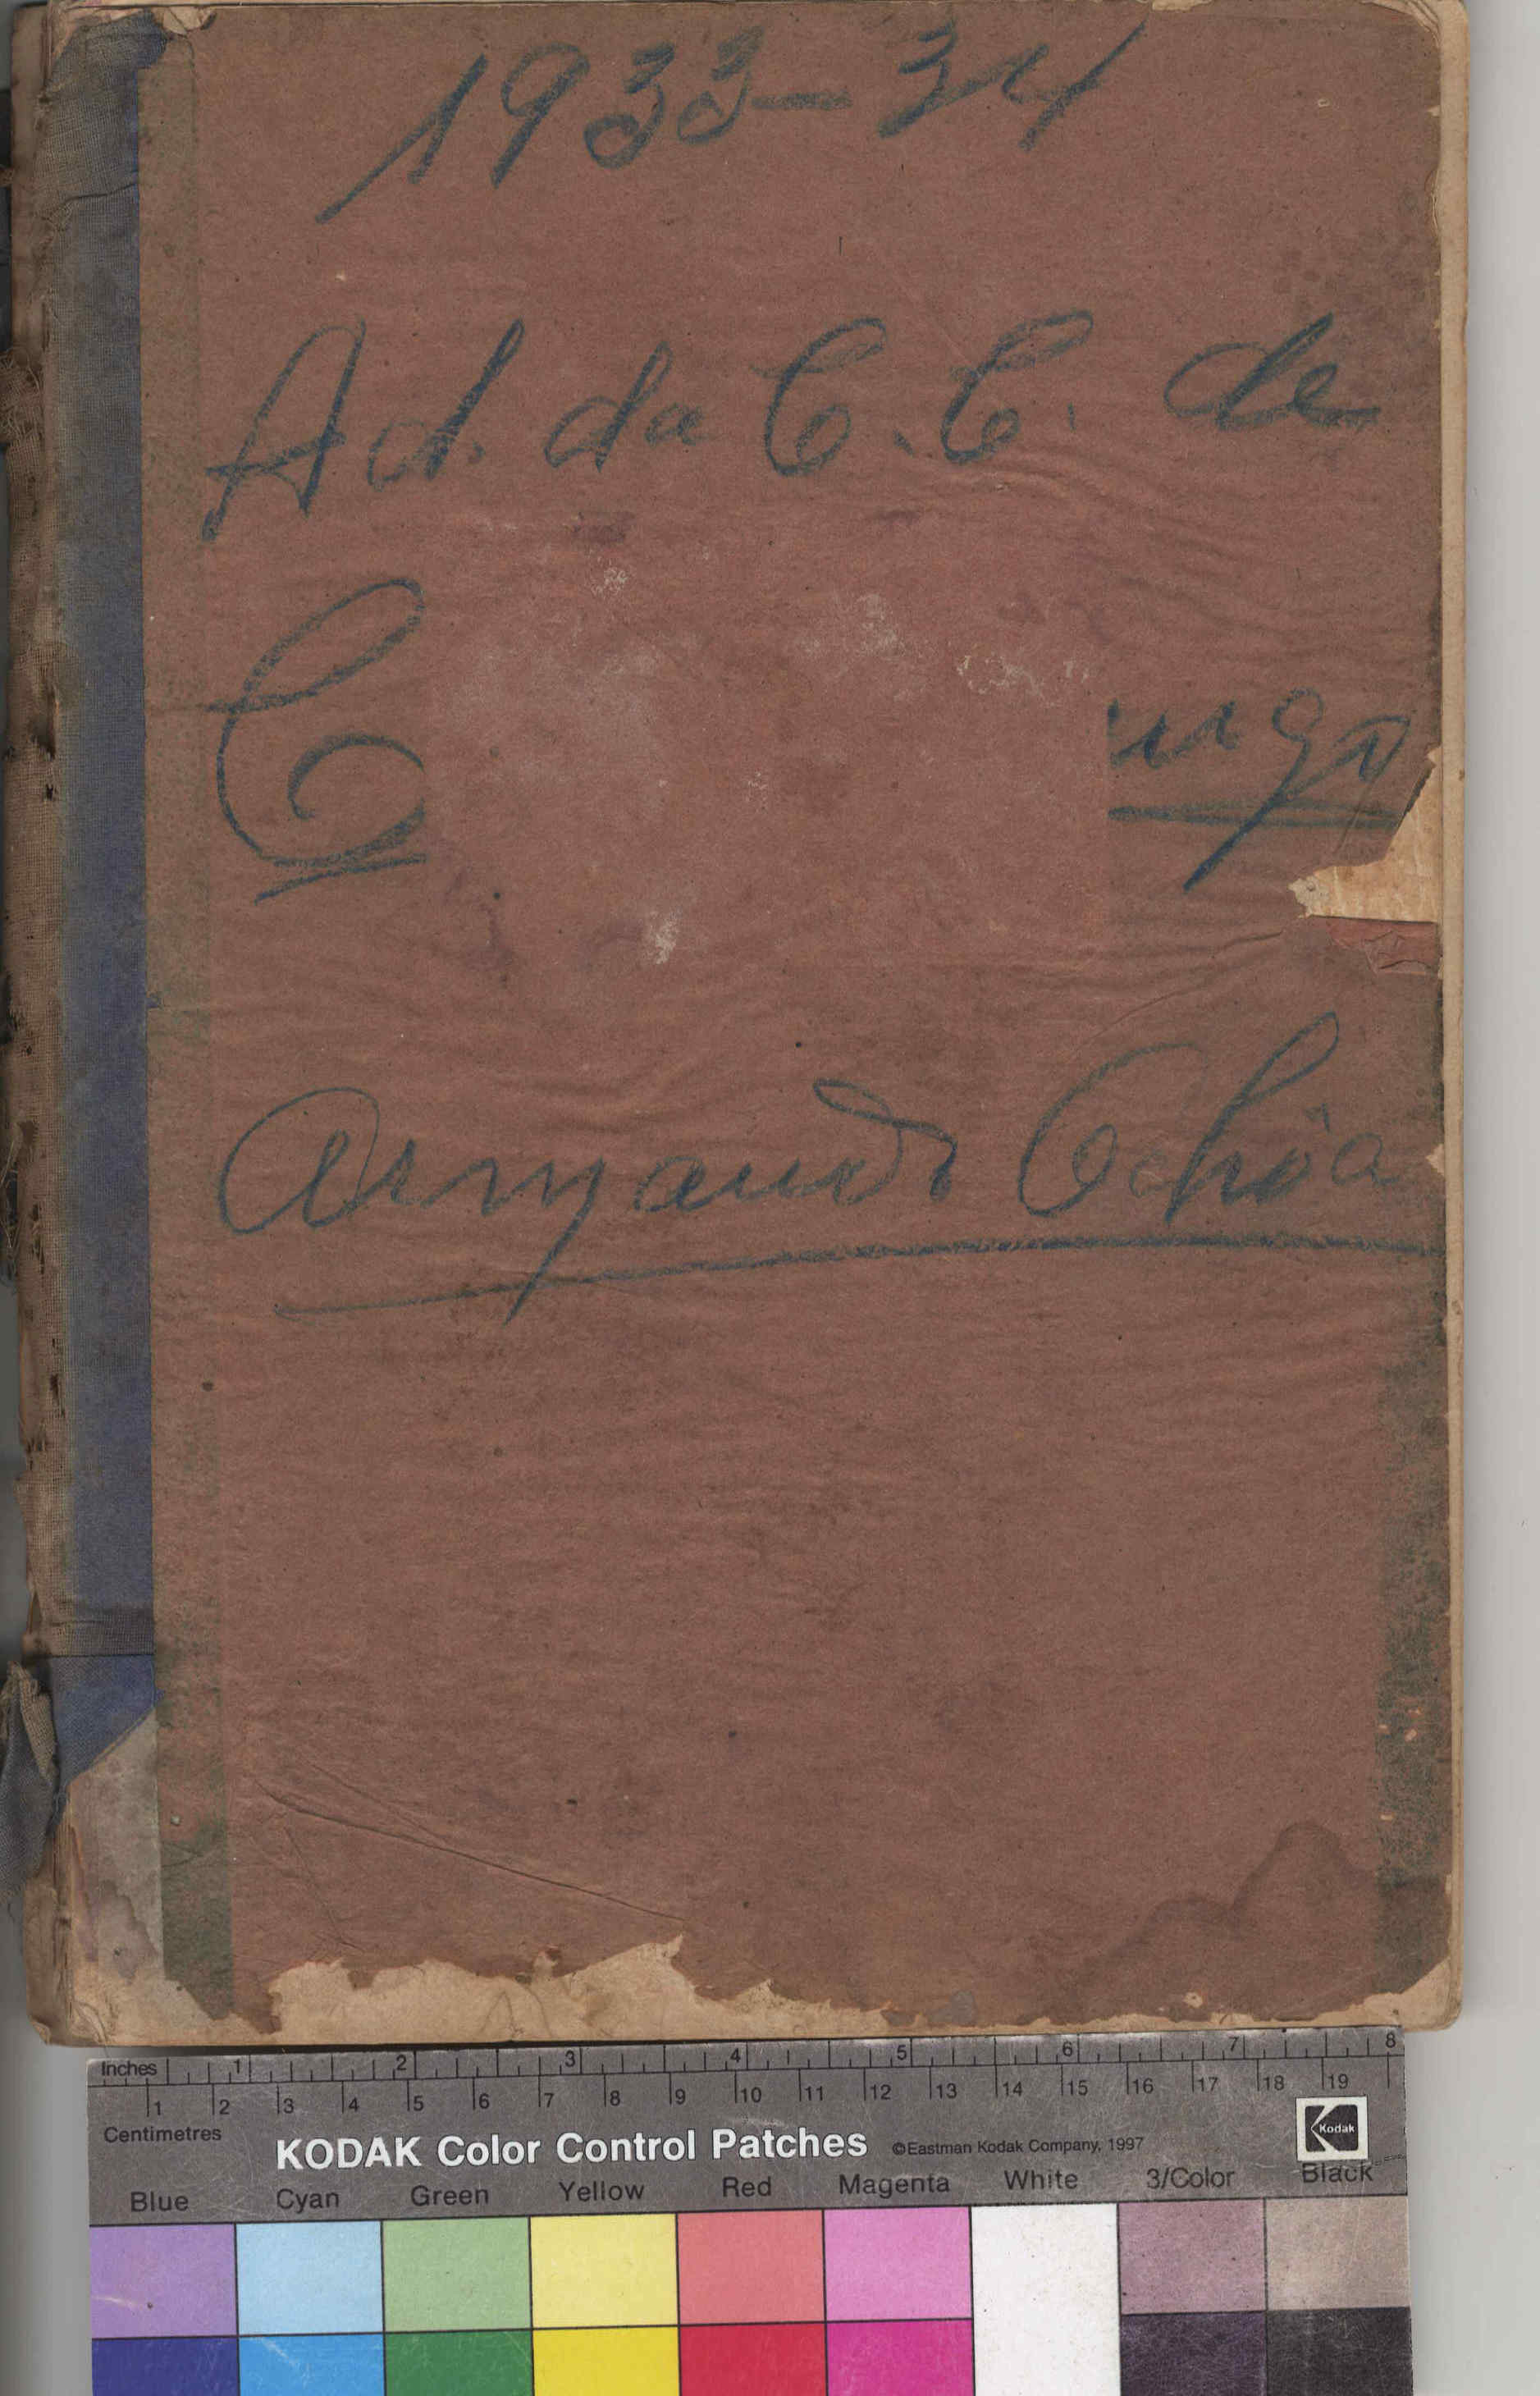 1933-34
Ad. da C. C. de
Armando Ochôa
Inches 1 2 3 4 5 6 7 8
1 2 3 4 5 6 7 8 9 10 11 12 13 14 15 16 17 18 19
Centimetres
KODAK Color Control Patches ©Eastman Kodak Company, 1997 Kodak
Blue Cyan Green Yellow Red Magenta White 3/Color Black